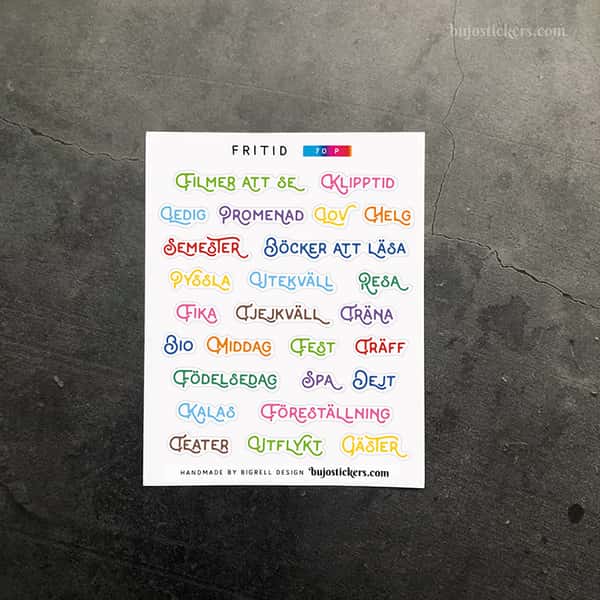 bujostickers.com
FRITID 70 P
FILMER ATT SE KLIPPTID
LEDIG PROMENAD LOV HELG
SEMESTER BÖCKER ATT LÄSA
PYSSLA UTEKVÄLL RESA
FIKA TJEJKVÄLL TRÄNA
BIO MIDDAG FEST TRÄFF
FÖDELSEDAG SPA DEJT
KALAS FÖRESTÄLLNING
TEATER UTFLYKT GÄSTER
HANDMADE BY BIGRELL DESIGN bujostickers.com